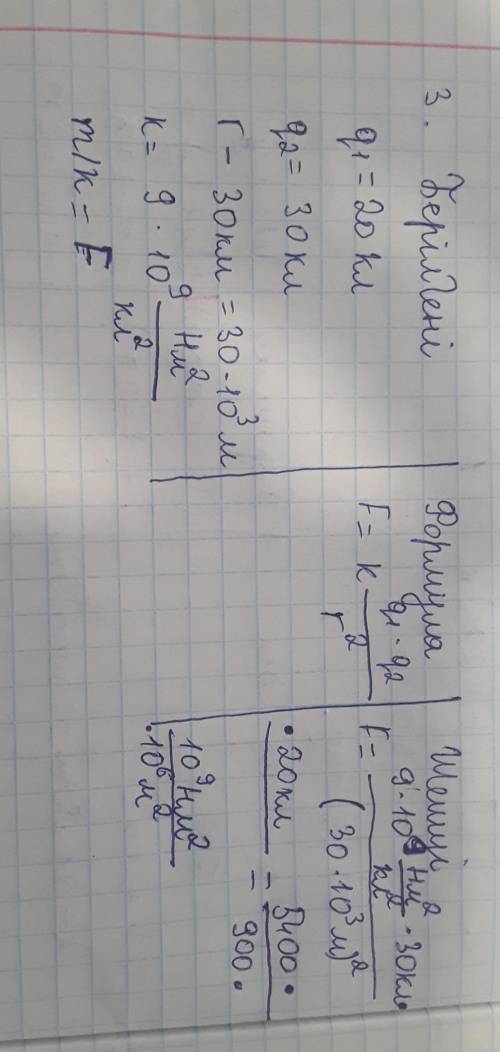 3. Берілгені
q1 = 20 кл
q2 = 30 кл
r – 30 км = 30 · 10³ м
к = 9 · 10⁹ Нм²/кл²
т/к = F
Формула
F = к q1 · q2 / r²
Шешуі
F = 9 · 10⁹ Нм²/кл² · 30 кл · / (30 · 10³ м)²
· 20 кл = 5400 · / 900 ·
10⁹ Нм² / · 10⁶ м²